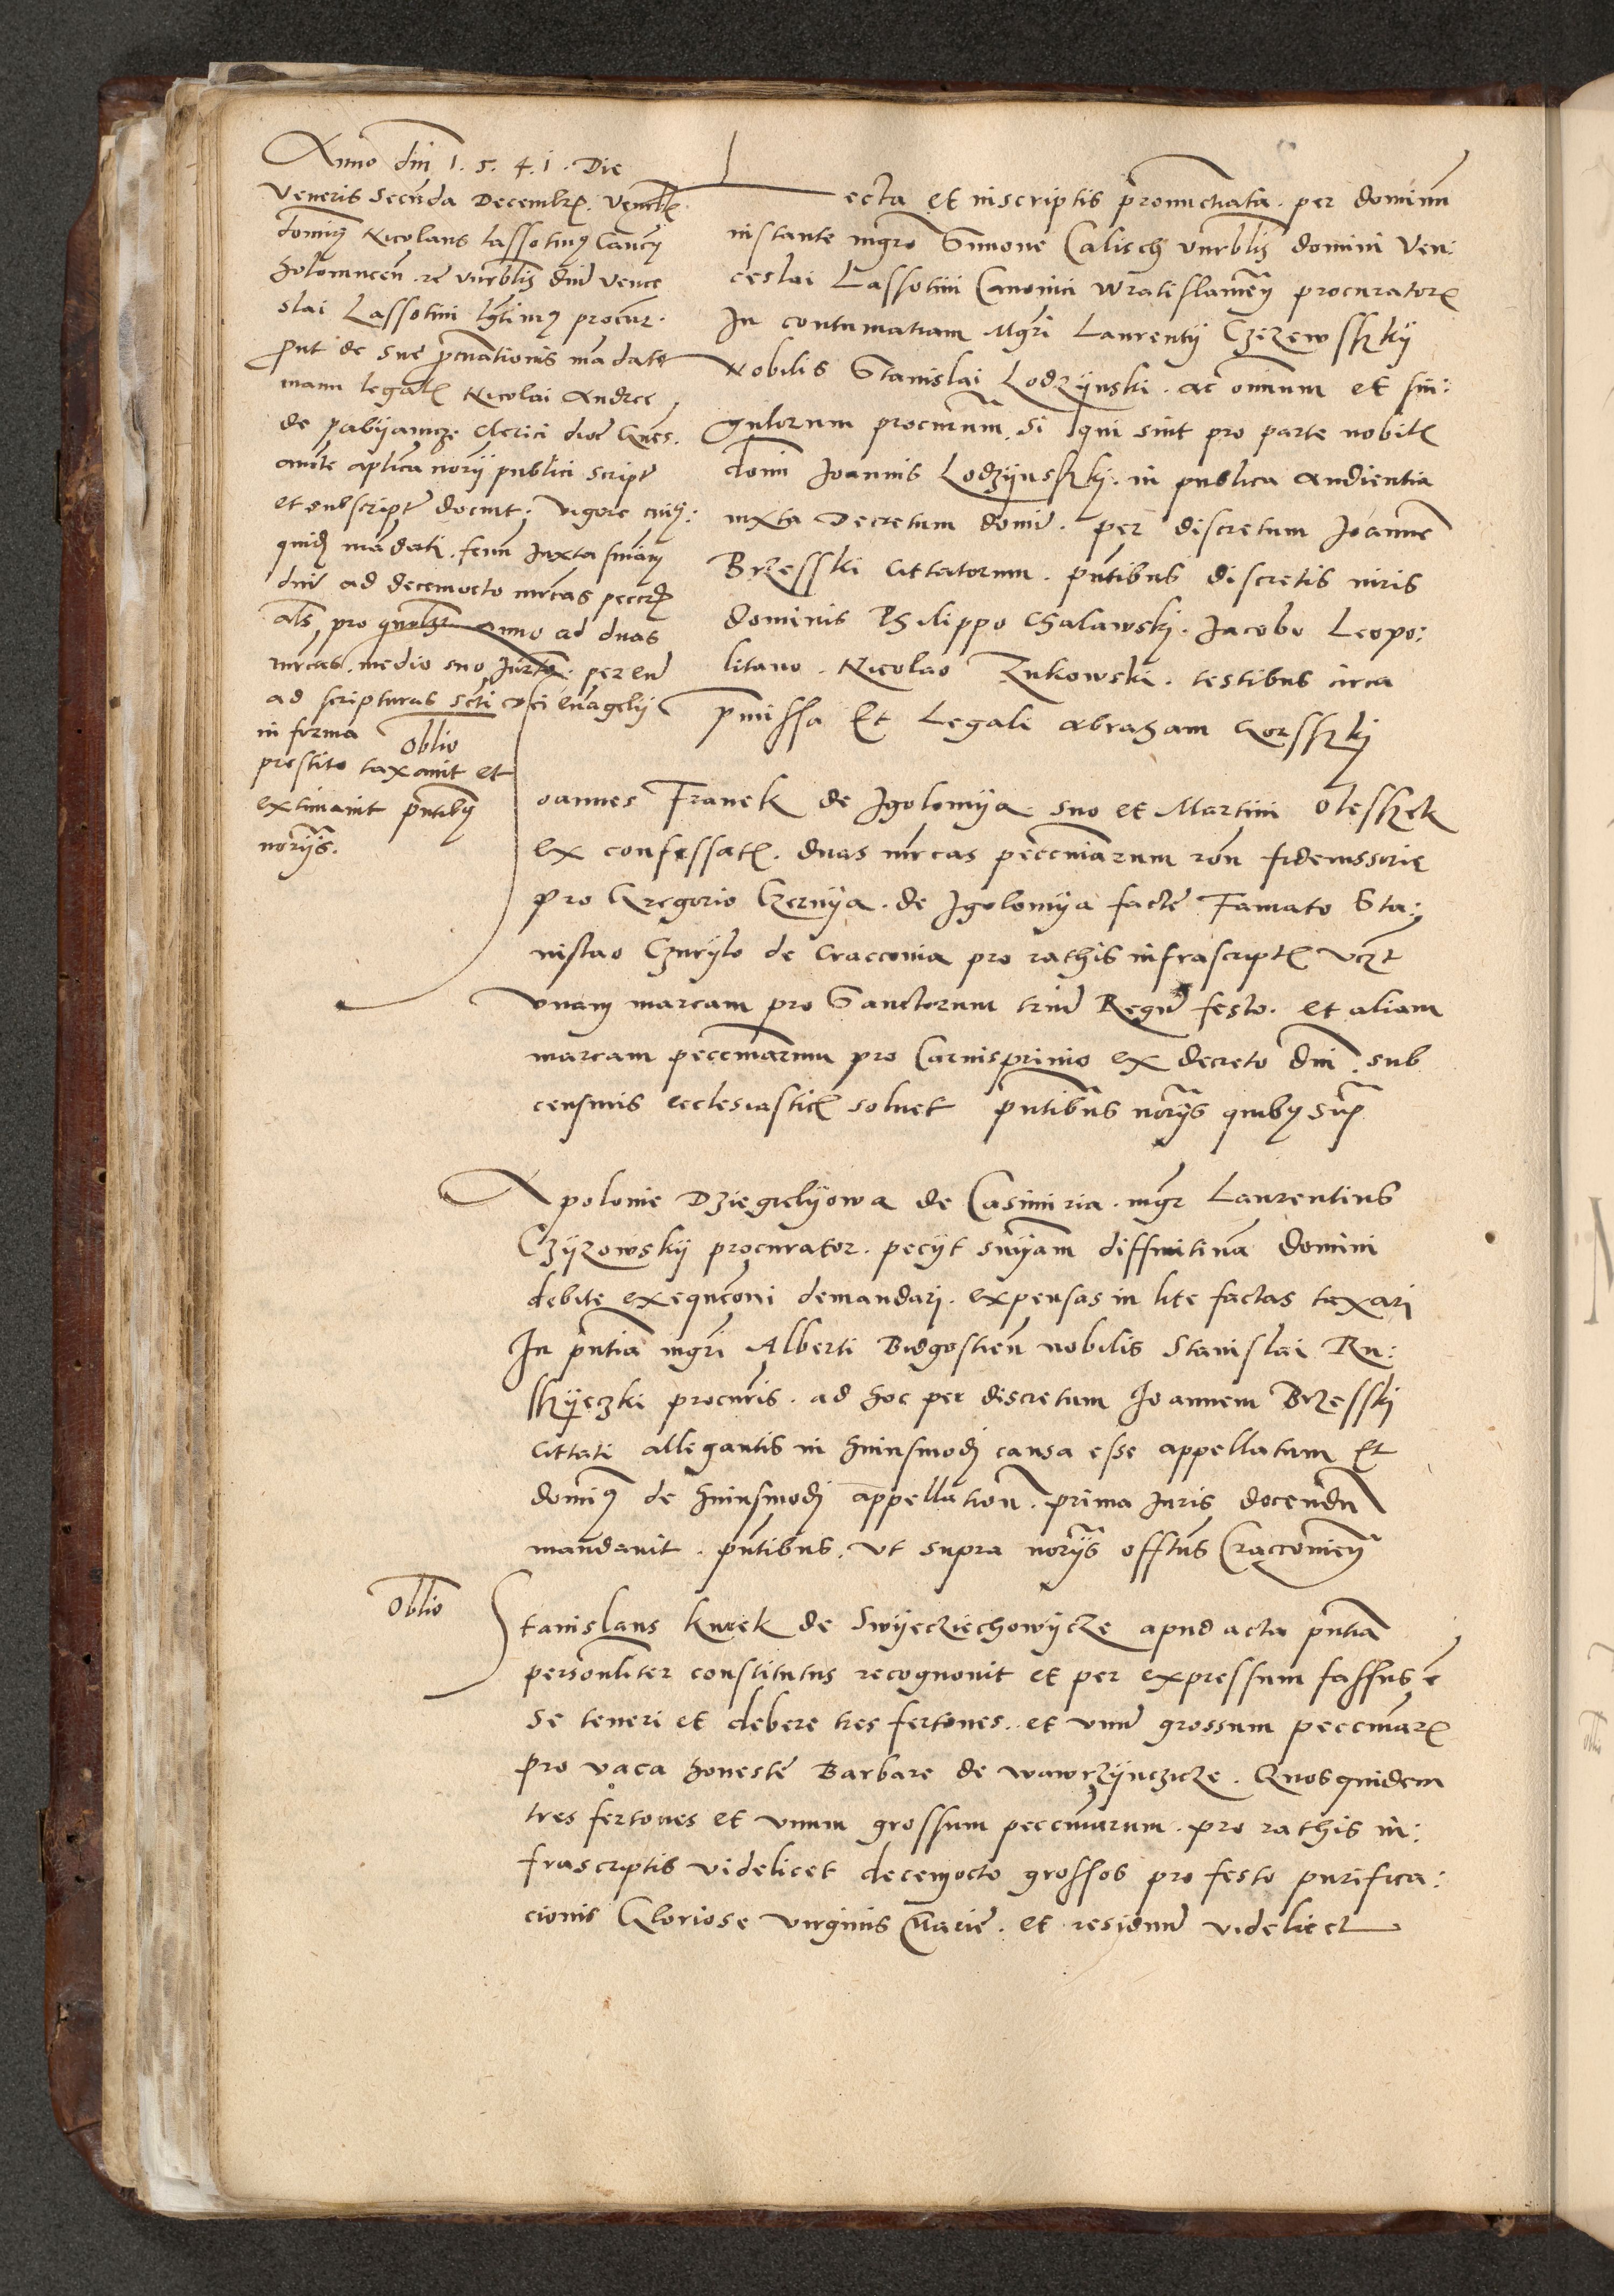 Anno dni 1.5.4.1. Die
Veneris Secunda Decembr. Venerbl
dominus Nicolaus Lassotinus Cancus
holomucen. re vnrblis dni Vence
slai Lassotini lgtimus procur.
Prout de sue pcurationis mandato
manu legal Nicolai Andree
de pabyanicze Clerici dioc Gnes.
aucte aplica norij publici script
et subscript docuit. Vigore cuius:
quid mandati. fenu Juxta sniam
dni ad decemocto mrcas peccru
als pro quolzt anno ad duas
mrcas. medio suo Jurto. per eu
ad scripturas scti Dei euagelij
in forma
prestito taxauit et
extimauit pntibus
norijs.
Lecta et inscriptis pronunctiata. per dominum
instante mgro Simone Calisch vnrblis domini Ven:
ceslai Lassotini Canonici Wratislauien procurator
In contumatiam Mgri Laurentij Czezewsskij
Nobilis Stanislai Lodzynski. ac omnium et sin:
gulorum procurum, si qui sint pro parte nobil
domi Joannis Lodzynsskj. in publica Audientia
iuxta Decretum domi. per discretum Joanne
Brzesski Cittatorum. pntibus discretis viris
dominis Philippo Chalawskj. Jacobo Leopo:
litano. Nicolao Zukowski. testibus circa
pmissa Et Legali Abraham Gorsskj
Oblio
Joannes Franek de Jgolomya. suo et Martini Olesszek
ex confessat. duas mrcas peccuniarum ron fideiussorie
pro Gregorio Czernya. de Jgolomya facte Famato Sta:
nislao Czurylo de Craccouia pro rathis infrascript vczt
Vnam marcam pro Sanctorum triu Regu festo. et aliam
marcam peccuniarum pro Carnispriuio ex decreto dni. sub
censuris ecclesiastic soluet pntibus norijs quibus sup
Apolonie Dziegielyowa de Casimiria. mgr Laurentius
Czyzowskij procurator. pecijt sniam diffinitiua domini
debite exequconi demandari. expensas in lite factas taxari
In pntia mgri Alberti Bidgostien nobilis Stanislai Ru:
sszyeczki procuris. ad hoc per discretum Joannem Brzesskj
Cittati allegantis in huiusmodj causa esse appellatum Et
dominus de huiusmodj appellation. prima Juris docendu
mandauit. pntibus. vt supra norijs offtus Craccouien
Oblio
Stanislaus kurek de Swyeczichowycze apud acta pntia
personliter constitutus recognouit et per expressum fassus e
Se teneri et debere tres fertones. et vnu grossum peccuniar
pro vaca honeste Barbare de wawrzynczicze. Quosquidem
tres fertones et vnum grossum peccuniarum. pro rathis in:
frascriptis videlicet decemocto grossos pro festo purifica:
cionis Gloriose virginis Marie. et residuu videlicet